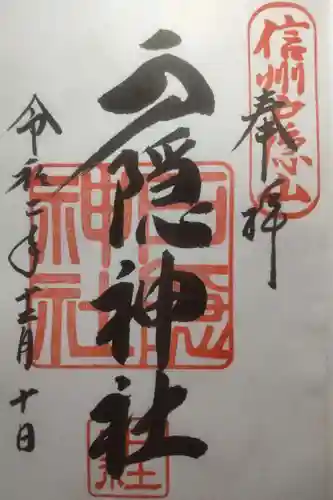 信州戸隠山
奉拝
戸隠神社
戸隠
神社
令和二年十二月十日